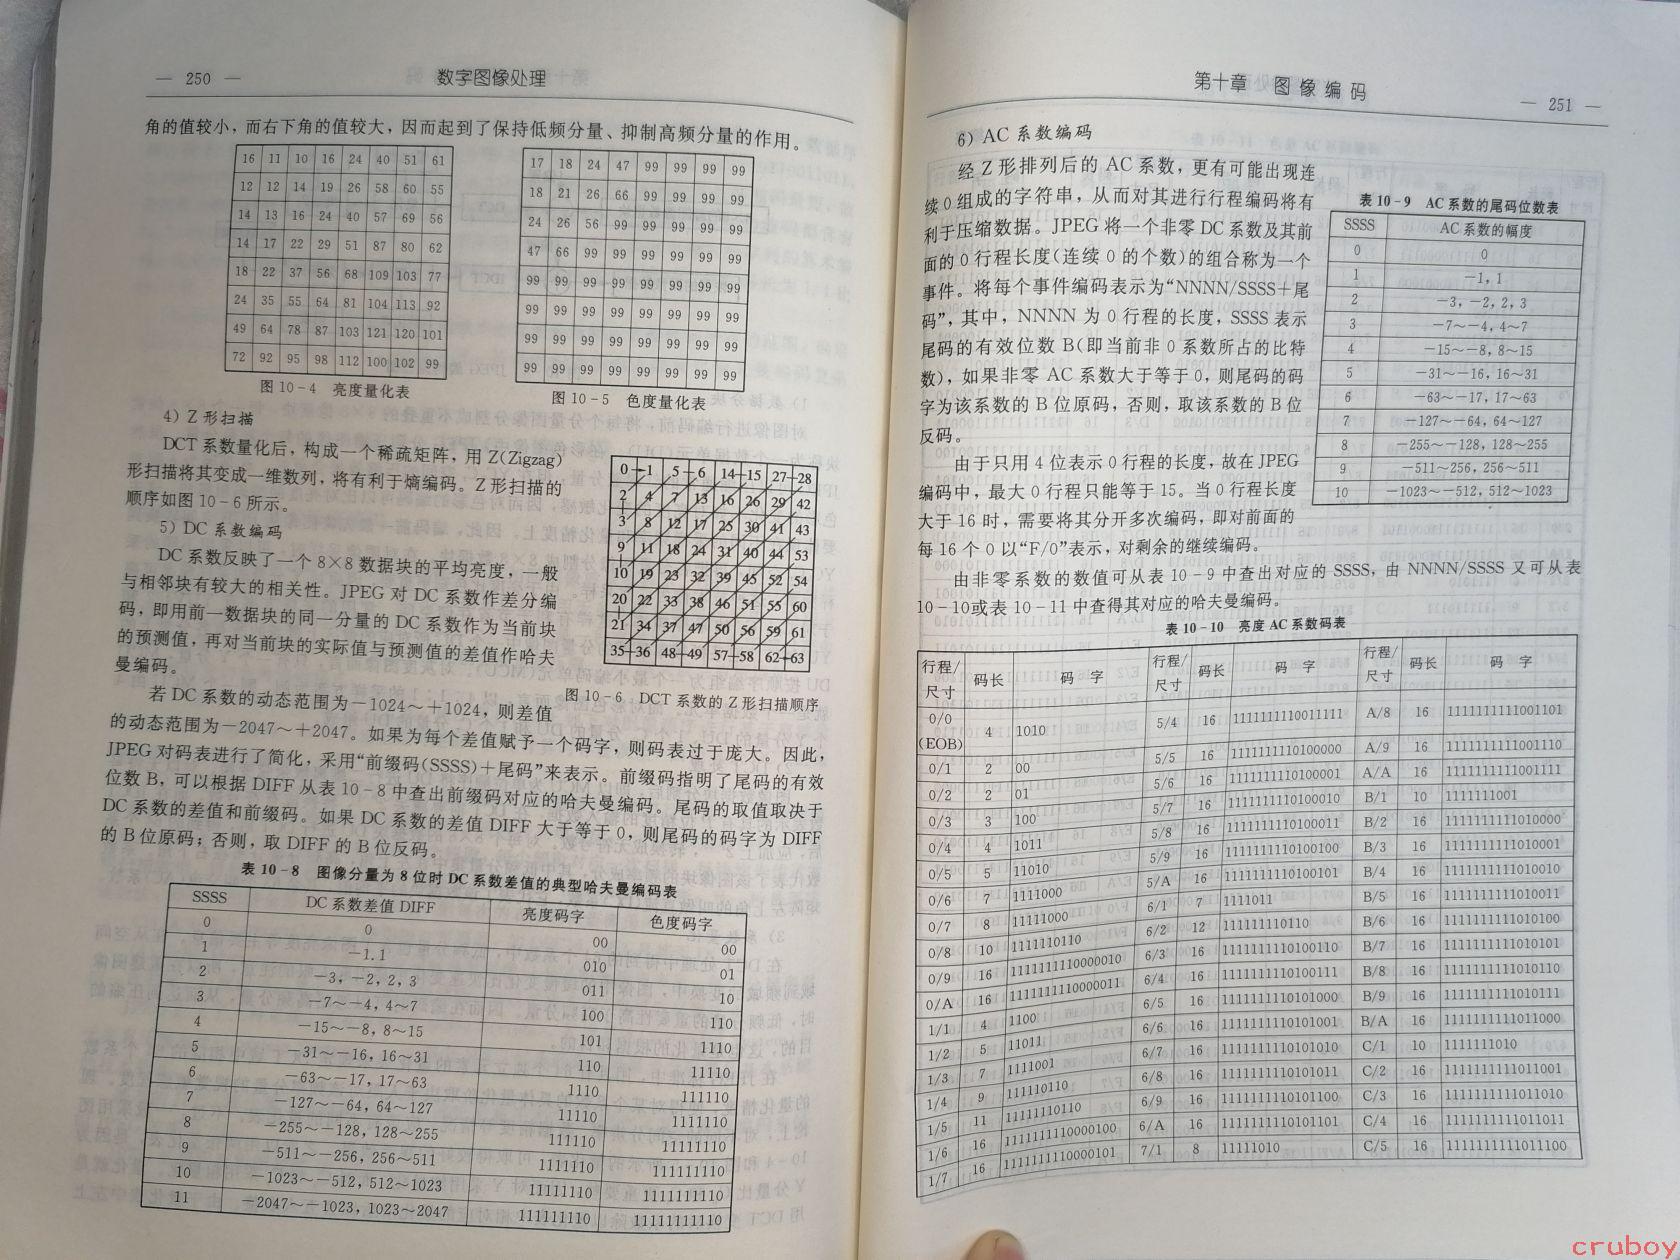 — 250 —
数字图像处理
角的值较小，而右下角的值较大，因而起到了保持低频分量、抑制高频分量的作用。
16 11 10 16 24 40 51 61
12 12 14 19 26 58 60 55
14 13 16 24 40 57 69 56
14 17 22 29 51 87 80 62
18 22 37 56 68 109 103 77
24 35 55 64 81 104 113 92
49 64 78 87 103 121 120 101
72 92 95 98 112 100 102 99
图 10-4 亮度量化表
17 18 24 47 99 99 99 99
18 21 26 66 99 99 99 99
24 26 56 99 99 99 99 99
47 66 99 99 99 99 99 99
99 99 99 99 99 99 99 99
99 99 99 99 99 99 99 99
99 99 99 99 99 99 99 99
99 99 99 99 99 99 99 99
图 10-5 色度量化表
4) Z 形扫描
DCT 系数量化后，构成一个稀疏矩阵，用 Z(Zigzag)
形扫描将其变成一维数列，将有利于熵编码。Z 形扫描的
顺序如图 10-6 所示。
5) DC 系数编码
DC 系数反映了一个 8×8 数据块的平均亮度，一般
与相邻块有较大的相关性。JPEG 对 DC 系数作差分编
码，即用前一数据块的同一分量的 DC 系数作为当前块
的预测值，再对当前块的实际值与预测值的差值作哈夫
曼编码。
0 1 5 6 14 15 27 28
2 4 7 13 16 26 29 42
3 8 12 17 25 30 41 43
9 11 18 24 31 40 44 53
10 19 23 32 39 45 52 54
20 22 33 38 46 51 55 60
21 34 37 47 50 56 59 61
35 36 48 49 57 58 62 63
图 10-6 DCT 系数的 Z 形扫描顺序
若 DC 系数的动态范围为－1024～＋1024，则差值
的动态范围为－2047～＋2047。如果为每个差值赋予一个码字，则码表过于庞大。因此，
JPEG 对码表进行了简化，采用“前缀码(SSSS)＋尾码”来表示。前缀码指明了尾码的有效
位数 B，可以根据 DIFF 从表 10-8 中查出前缀码对应的哈夫曼编码。尾码的取值取决于
DC 系数的差值和前缀码。如果 DC 系数的差值 DIFF 大于等于 0，则尾码的码字为 DIFF
的 B 位原码；否则，取 DIFF 的 B 位反码。
表 10-8 图像分量为 8 位时 DC 系数差值的典型哈夫曼编码表
SSSS DC 系数差值 DIFF 亮度码字 色度码字
0 0 00 00
1 －1.1 010 01
2 －3，－2，2，3 011 10
3 －7～－4，4～7 100 110
4 －15～－8，8～15 101 1110
5 －31～－16，16～31 110 11110
6 －63～－17，17～63 1110 111110
7 －127～－64，64～127 11110 1111110
8 －255～－128，128～255 111110 11111110
9 －511～－256，256～511 1111110 111111110
10 －1023～－512，512～1023 11111110 1111111110
11 －2047～－1023，1023～2047 111111110 11111111110
第十章 图像编码
— 251 —
6) AC 系数编码
经 Z 形排列后的 AC 系数，更有可能出现连
续 0 组成的字符串，从而对其进行行程编码将有
利于压缩数据。JPEG 将一个非零 DC 系数及其前
面的 0 行程长度(连续 0 的个数)的组合称为一个
事件。将每个事件编码表示为“NNNN/SSSS＋尾
码”，其中，NNNN 为 0 行程的长度，SSSS 表示
尾码的有效位数 B(即当前非 0 系数所占的比特
数)，如果非零 AC 系数大于等于 0，则尾码的码
字为该系数的 B 位原码，否则，取该系数的 B 位
反码。
由于只用 4 位表示 0 行程的长度，故在 JPEG
编码中，最大 0 行程只能等于 15。当 0 行程长度
大于 16 时，需要将其分开多次编码，即对前面的
每 16 个 0 以“F/0”表示，对剩余的继续编码。
表 10-9 AC 系数的尾码位数表
SSSS AC 系数的幅度
0 0
1 －1，1
2 －3，－2，2，3
3 －7～－4，4～7
4 －15～－8，8～15
5 －31～－16，16～31
6 －63～－17，17～63
7 －127～－64，64～127
8 －255～－128，128～255
9 －511～256，256～511
10 －1023～－512，512～1023
由非零系数的数值可从表 10-9 中查出对应的 SSSS，由 NNNN/SSSS 又可从表
10-10或表 10-11 中查得其对应的哈夫曼编码。
表 10-10 亮度 AC 系数码表
行程/尺寸 码长 码字 行程/尺寸 码长 码字 行程/尺寸 码长 码字
0/0 (EOB) 4 1010 5/4 16 1111111110011111 A/8 16 1111111111001101
0/1 2 00 5/5 16 1111111110100000 A/9 16 1111111111001110
0/2 2 01 5/6 16 1111111110100001 A/A 16 1111111111001111
0/3 3 100 5/7 16 1111111110100010 B/1 10 1111111001
0/4 4 1011 5/8 16 1111111110100011 B/2 16 1111111111010000
0/5 5 11010 5/9 16 1111111110100100 B/3 16 1111111111010001
0/6 7 1111000 5/A 16 1111111110100101 B/4 16 1111111111010010
0/7 8 11111000 6/1 7 1111011 B/5 16 1111111111010011
0/8 10 1111110110 6/2 12 111111110110 B/6 16 1111111111010100
0/9 16 1111111110000010 6/3 16 1111111110100110 B/7 16 1111111111010101
0/A 16 1111111110000011 6/4 16 1111111110100111 B/8 16 1111111111010110
1/1 4 1100 6/5 16 1111111110101000 B/9 16 1111111111010111
1/2 5 11011 6/6 16 1111111110101001 B/A 16 1111111111011000
1/3 7 1111001 6/7 16 1111111110101010 C/1 10 1111111010
1/4 9 111110110 6/8 16 1111111110101011 C/2 16 1111111111011001
1/5 11 11111110110 6/9 16 1111111110101100 C/3 16 1111111111011010
1/6 16 1111111110000100 6/A 16 1111111110101101 C/4 16 1111111111011011
1/7 16 1111111110000101 7/1 8 11111010 C/5 16 1111111111011100
cruboy